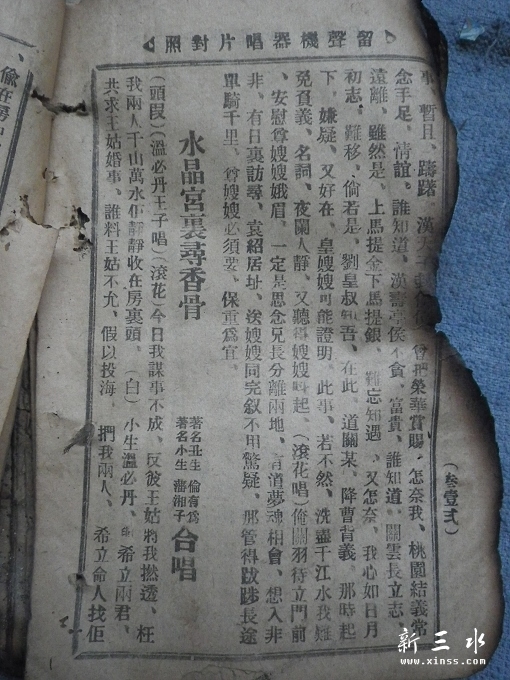 留聲機器唱片對照
(叁壹弍)
事、暫且、躊躇、漢 曾把榮華賞賜、怎奈我、桃園結義常
念手足、情誼、誰知道、漢壽亭侯不貪、富貴、誰知道、關雲長立志、
遠離、雖然是、上馬提金下馬提銀、難忘知遇、又怎奈、我心如日月
初志、難移、倘若是、劉皇叔知吾、在此、道關某、降曹背義、那時起
下、嫌疑、又好在、皇嫂嫂可能證明、此事、若不然、洗盡千江水我難
免負義、名詞、夜闌人靜、又聽得嫂嫂 起、(滾花唱)俺關羽待立門前
、安慰尊嫂嫂娥眉、一定是思念兄長分離兩地、有道夢魂相會、想入非
非、有日裏訪尋、袁紹居址、送嫂嫂同完叙不用驚疑、那管得跋踄長途
單騎千里、尊嫂嫂必須要、保重爲宜、
水晶宮裏尋香骨
著名丑生 倫有爲
著名小生 潘湘子
合唱
(頭段)(溫必丹王子唱)(滾花)今日我謀事不成、反被王姑將我撚透、枉
我兩人千山萬水佢靜靜收在房裏頭、(白)小生溫必丹、 希立雨君、
共求王姑婚事、誰料王姑不允、假以投海、捫我兩人、希立命人找佢
、偸在房
新三水
www.xinss.com